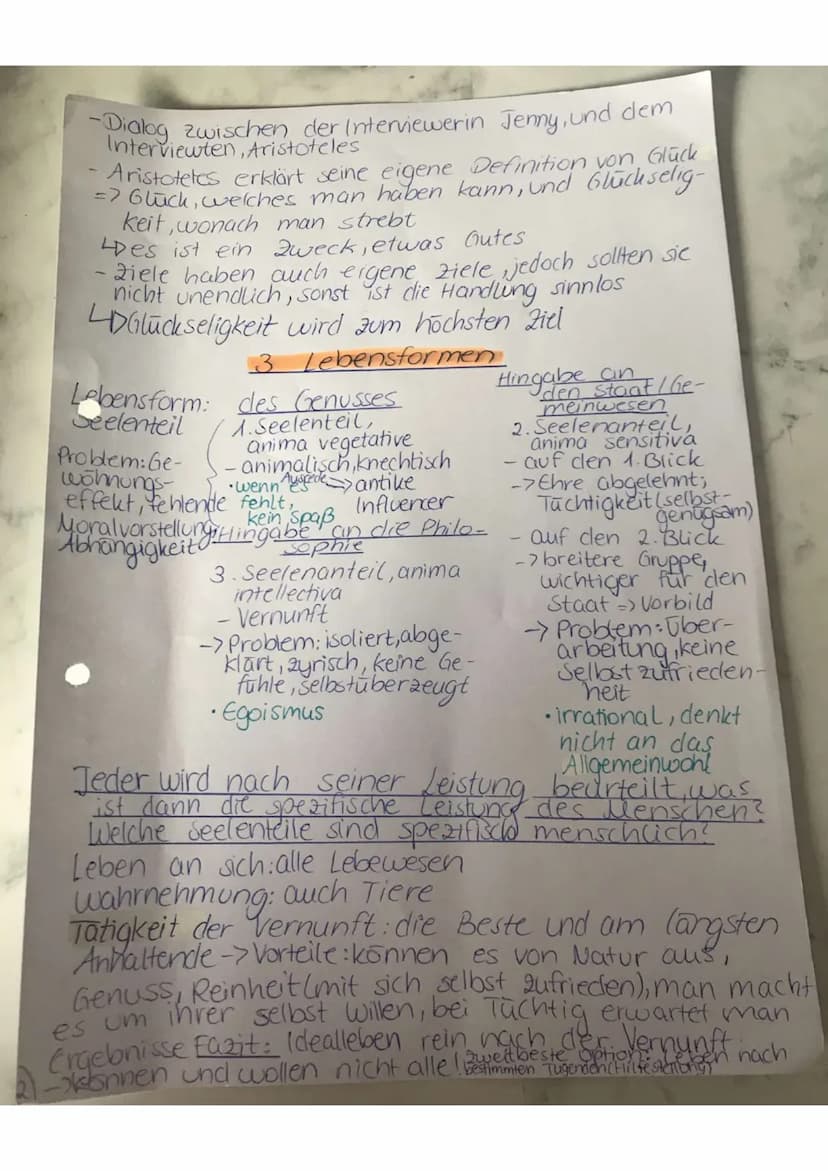 - Dialog zwischen der Interviewerin Jenny, und dem
Interviewten, Aristoteles
- Aristoteles erklärt seine eigene Definition von Glück
=> Glück, welches man haben kann, und Glückselig-
keit, wonach man strebt
↳ es ist ein Zweck, etwas Gutes
- Ziele haben auch eigene Ziele, jedoch sollten sie
nicht unendlich, sonst ist die Handlung sinnlos
↳ Glückseligkeit wird zum höchsten Ziel
3 Lebensformen
Lebensform:
Seelenteil
Problem: Ge-
wöhnungs-
effekt, fehlende
Moralvorstellung,
Abhängigkeit
des Genusses
1. Seelenteil,
anima vegetative
- animalisch, knechtisch
• wenn es Ausrede -> antike
fehlt, Influencer
kein Spaß
Hingabe an die Philo-
sophie
3. Seelenanteil, anima
intellectiva
- Vernunft
-> Problem: isoliert, abge-
klärt, zyrisch, keine Ge-
fühle, selbstüberzeugt
• Egoismus
Hingabe an
den Staat/Ge-
meinwesen
2. Seelenanteil,
anima sensitiva
- auf den 1. Blick
-> Ehre abgelehnt;
Tüchtigkeit (selbst-
genügsam)
- auf den 2. Blick
-> breitere Gruppe,
wichtiger für den
Staat => Vorbild
-> Problem: Über-
arbeitung, keine
Selbstzufrieden-
heit
• irrational, denkt
nicht an das
Allgemeinwohl
Jeder wird nach seiner Leistung beurteilt, was
ist dann die spezifische Leistung des Menschen?
Welche Seelenteile sind spezifisch menschlich?
Leben an sich: alle Lebewesen
Wahrnehmung: auch Tiere
Tätigkeit der Vernunft: die Beste und am längsten
Anhaltende -> Vorteile: können es von Natur aus,
Genuss, Reinheit (mit sich selbst zufrieden), man macht
es um ihrer selbst willen, bei Tüchtig erwartet man
Ergebnisse Fazit: Idealleben rein nach der Vernunft
2) -> können und wollen nicht alle! zweitbeste Option: Leben nach
bestimmten Tugenden (Hilfestellung)